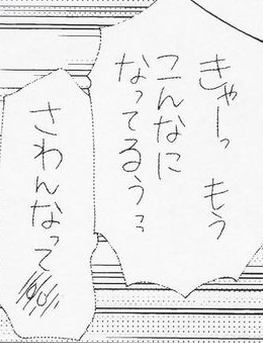 きゃーっ もう
こんなに
なってるぅっ
さわんなって